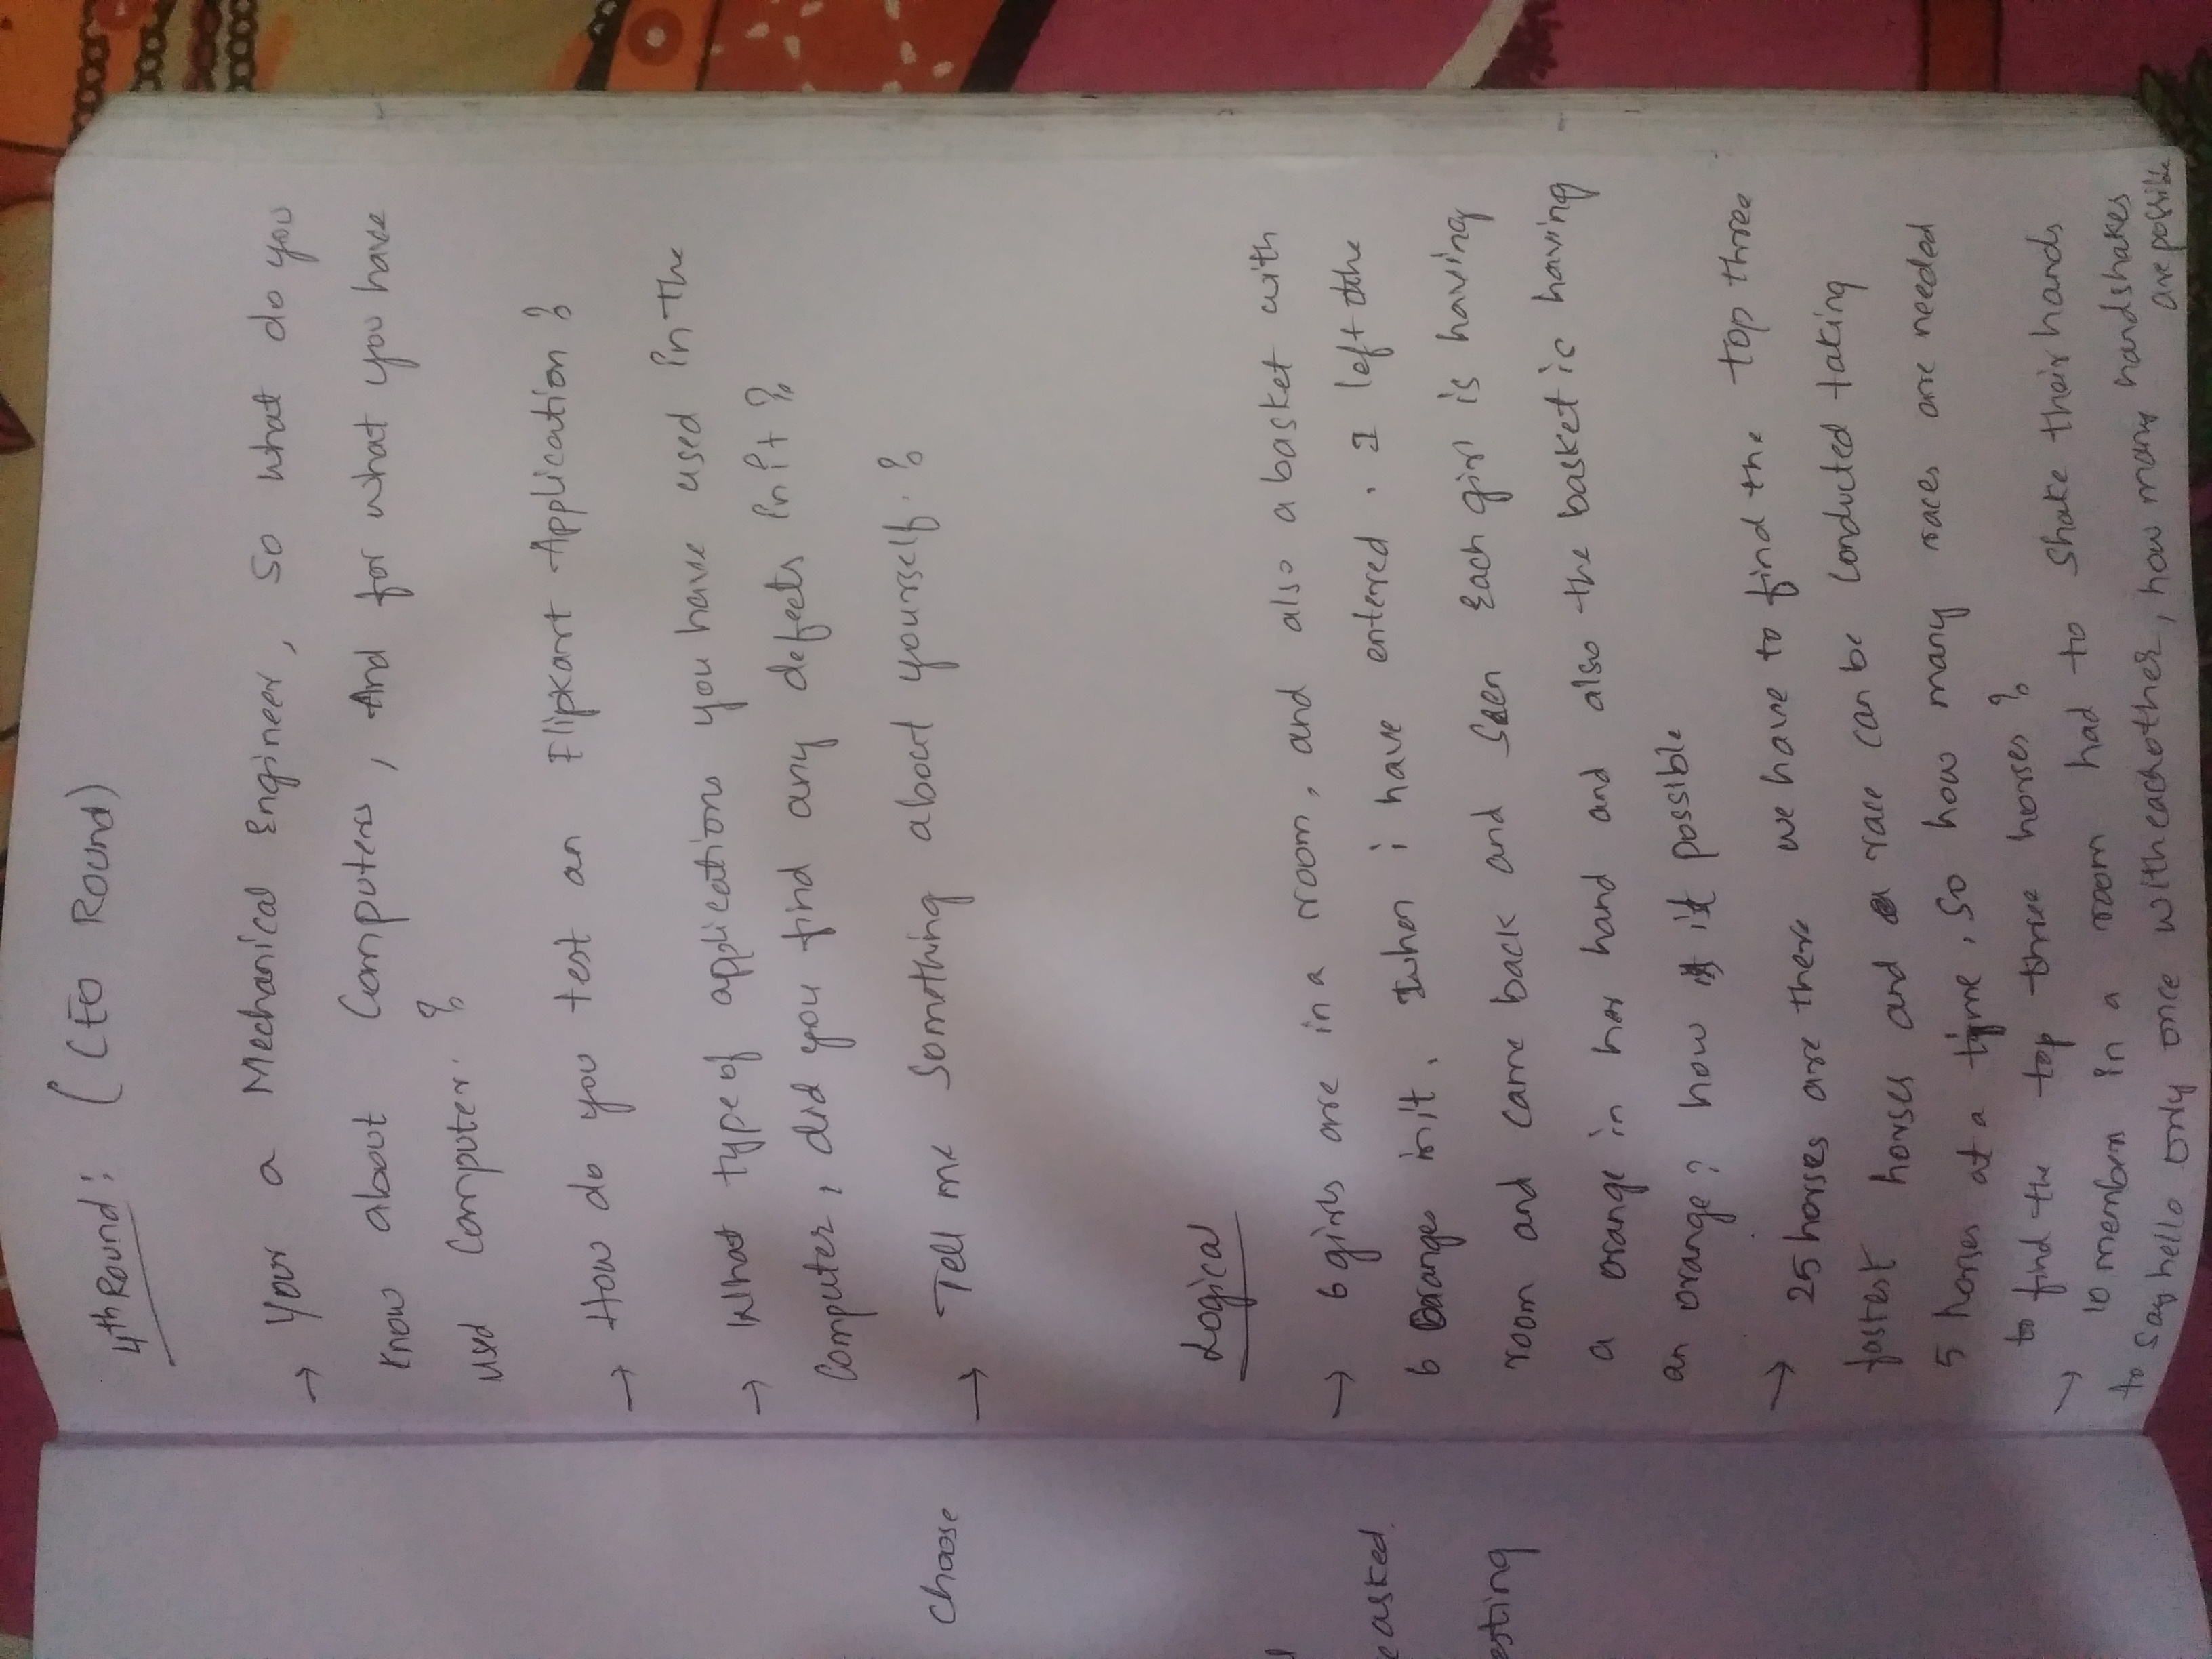 4th Round: (CEO Round)
→ Your a Mechanical Engineer, so what do you
know about Computers, And for what you have
used Computer. ?
→ How do you test an Flipkart Application ?
→ What type of applications you have used in the
Computer, did you find any defects in it ?
→ Tell me Something about yourself. ?
choose
Logical
→ 6 girls are in a room, and also a basket with
6 Oranges in it. when i have entered. I left the
room and came back and Seen Each girl is having
a orange in her hand and also the basket is having
an orange? how is it possible
→ 25 horses are there we have to find the top three
fastest horses and a race can be Conducted taking
5 horses at a time, So how many races are needed
to find the top three horses ?
→ 10 members in a room had to Shake their hands
to say hello only once with eachother, how many handshakes
are possible
asked.
esting